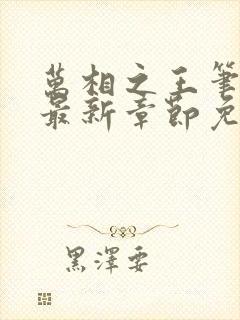 萬相之王筆
最新章節免
黑澤要